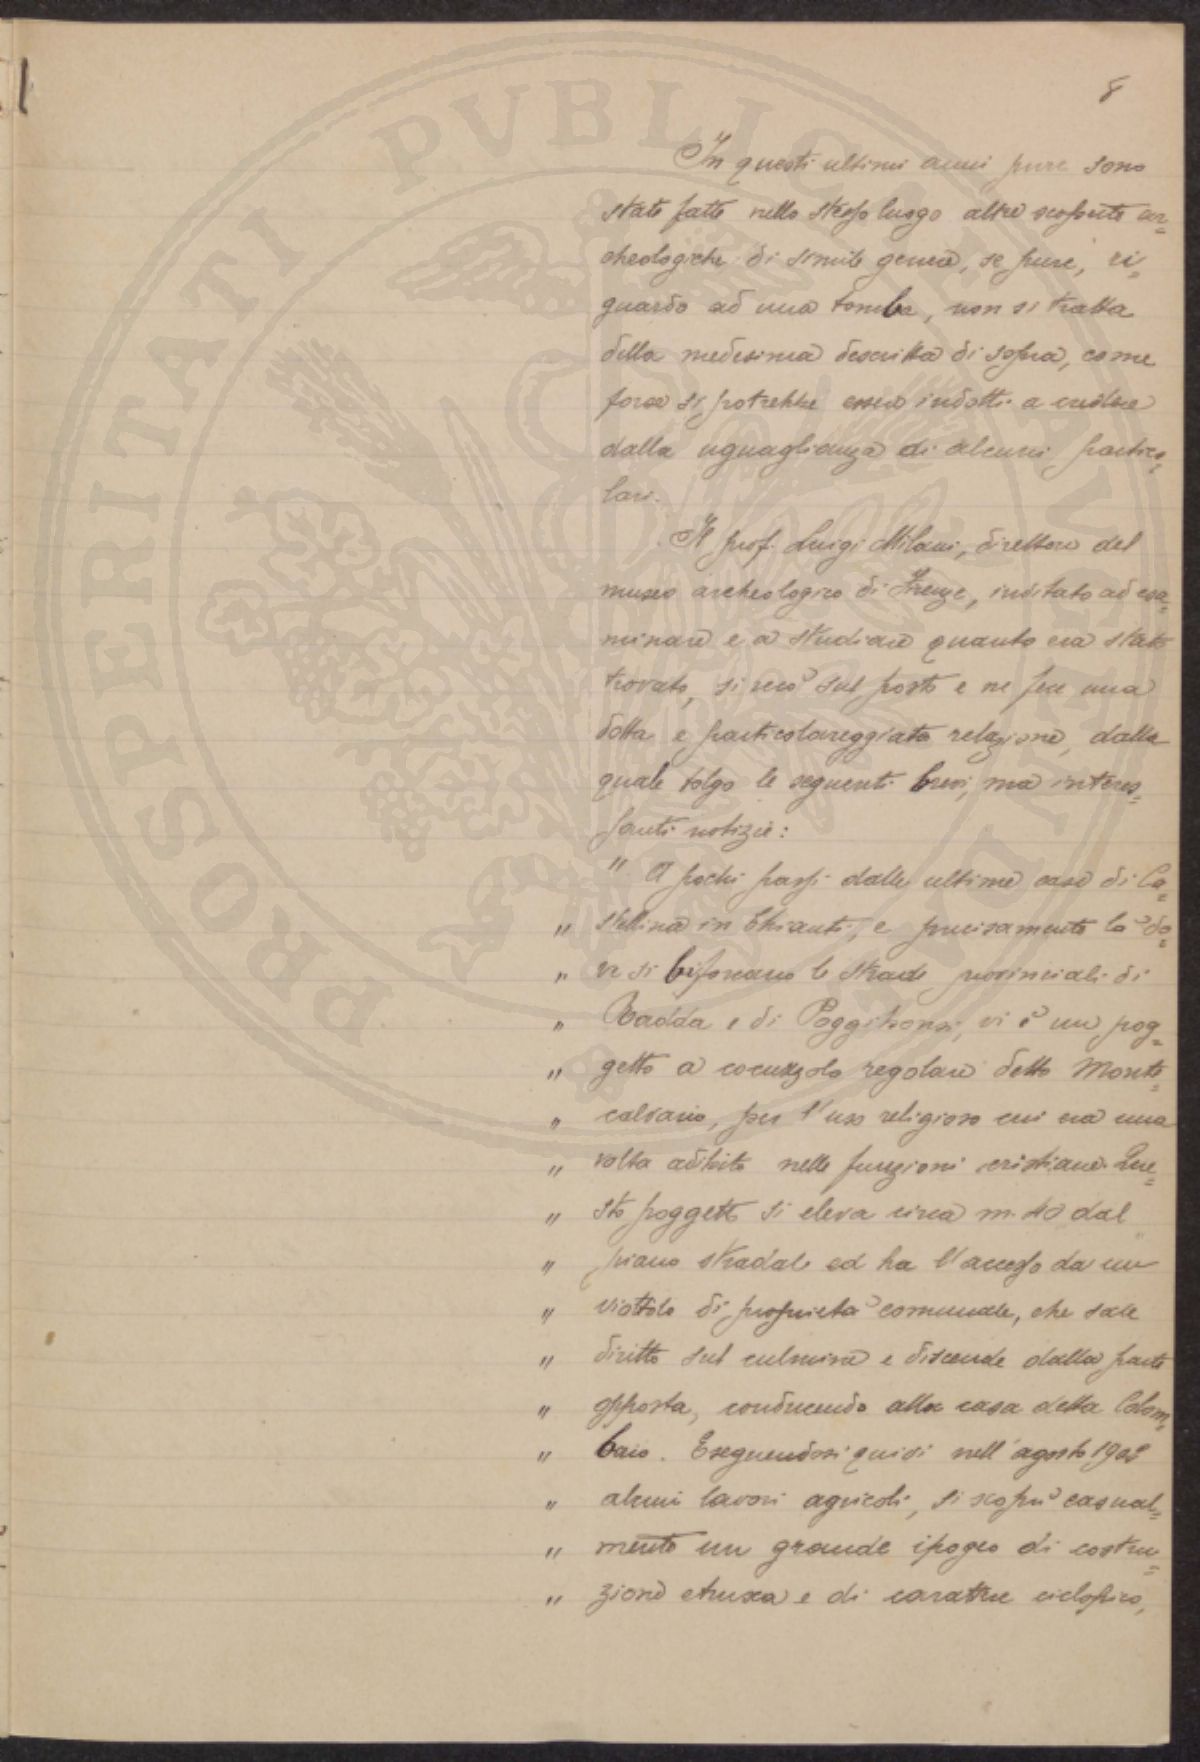 8
In questi ultimi anni pure sono
state fatte nello stesso luogo altre scoperte ar=
cheologiche di simile genere, se pure, ri=
guardo ad una tomba, non si tratta
della medesima descritta di sopra, come
forse si potrebbe esser indotti a credere
dalla uguaglianza di alcuni partico=
lari.
Il prof. Luigi Milani, direttore del
museo archeologico di Firenze, invitato ad esa=
minare e a studiare quanto era stato
trovato, si recò sul posto e ne fece una
dotta e particolareggiata relazione, dalla
quale tolgo le seguenti brevi, ma interes=
santi notizie:
" A pochi passi dalle ultime case di Ca=
" stellina in Chianti, e precisamente là do=
" ve si biforcano le strade provinciali di
" Radda e di Poggibonsi, vi è un pog=
" getto a cocuzzolo regolare detto Monte
" calvario, per l'uso religioso cui era una
" volta adibito nelle funzioni cristiane. Que=
" sto poggetto si eleva circa m. 40 dal
" piano stradale ed ha l'accesso da un
" viottolo di proprietà comunale, che sale
" diritto sul culmine e discende dalla parte
" opposta, conducendo alla casa detta Colom=
" baio. Eseguendosi quivi nell'agosto 1902
" alcuni lavori agricoli, si scoprì casual=
" mente un grande ipogeo di costru=
" zione etrusca e di carattere ciclopico,
PROSPERITATI PVBLICAE AVGENDAE